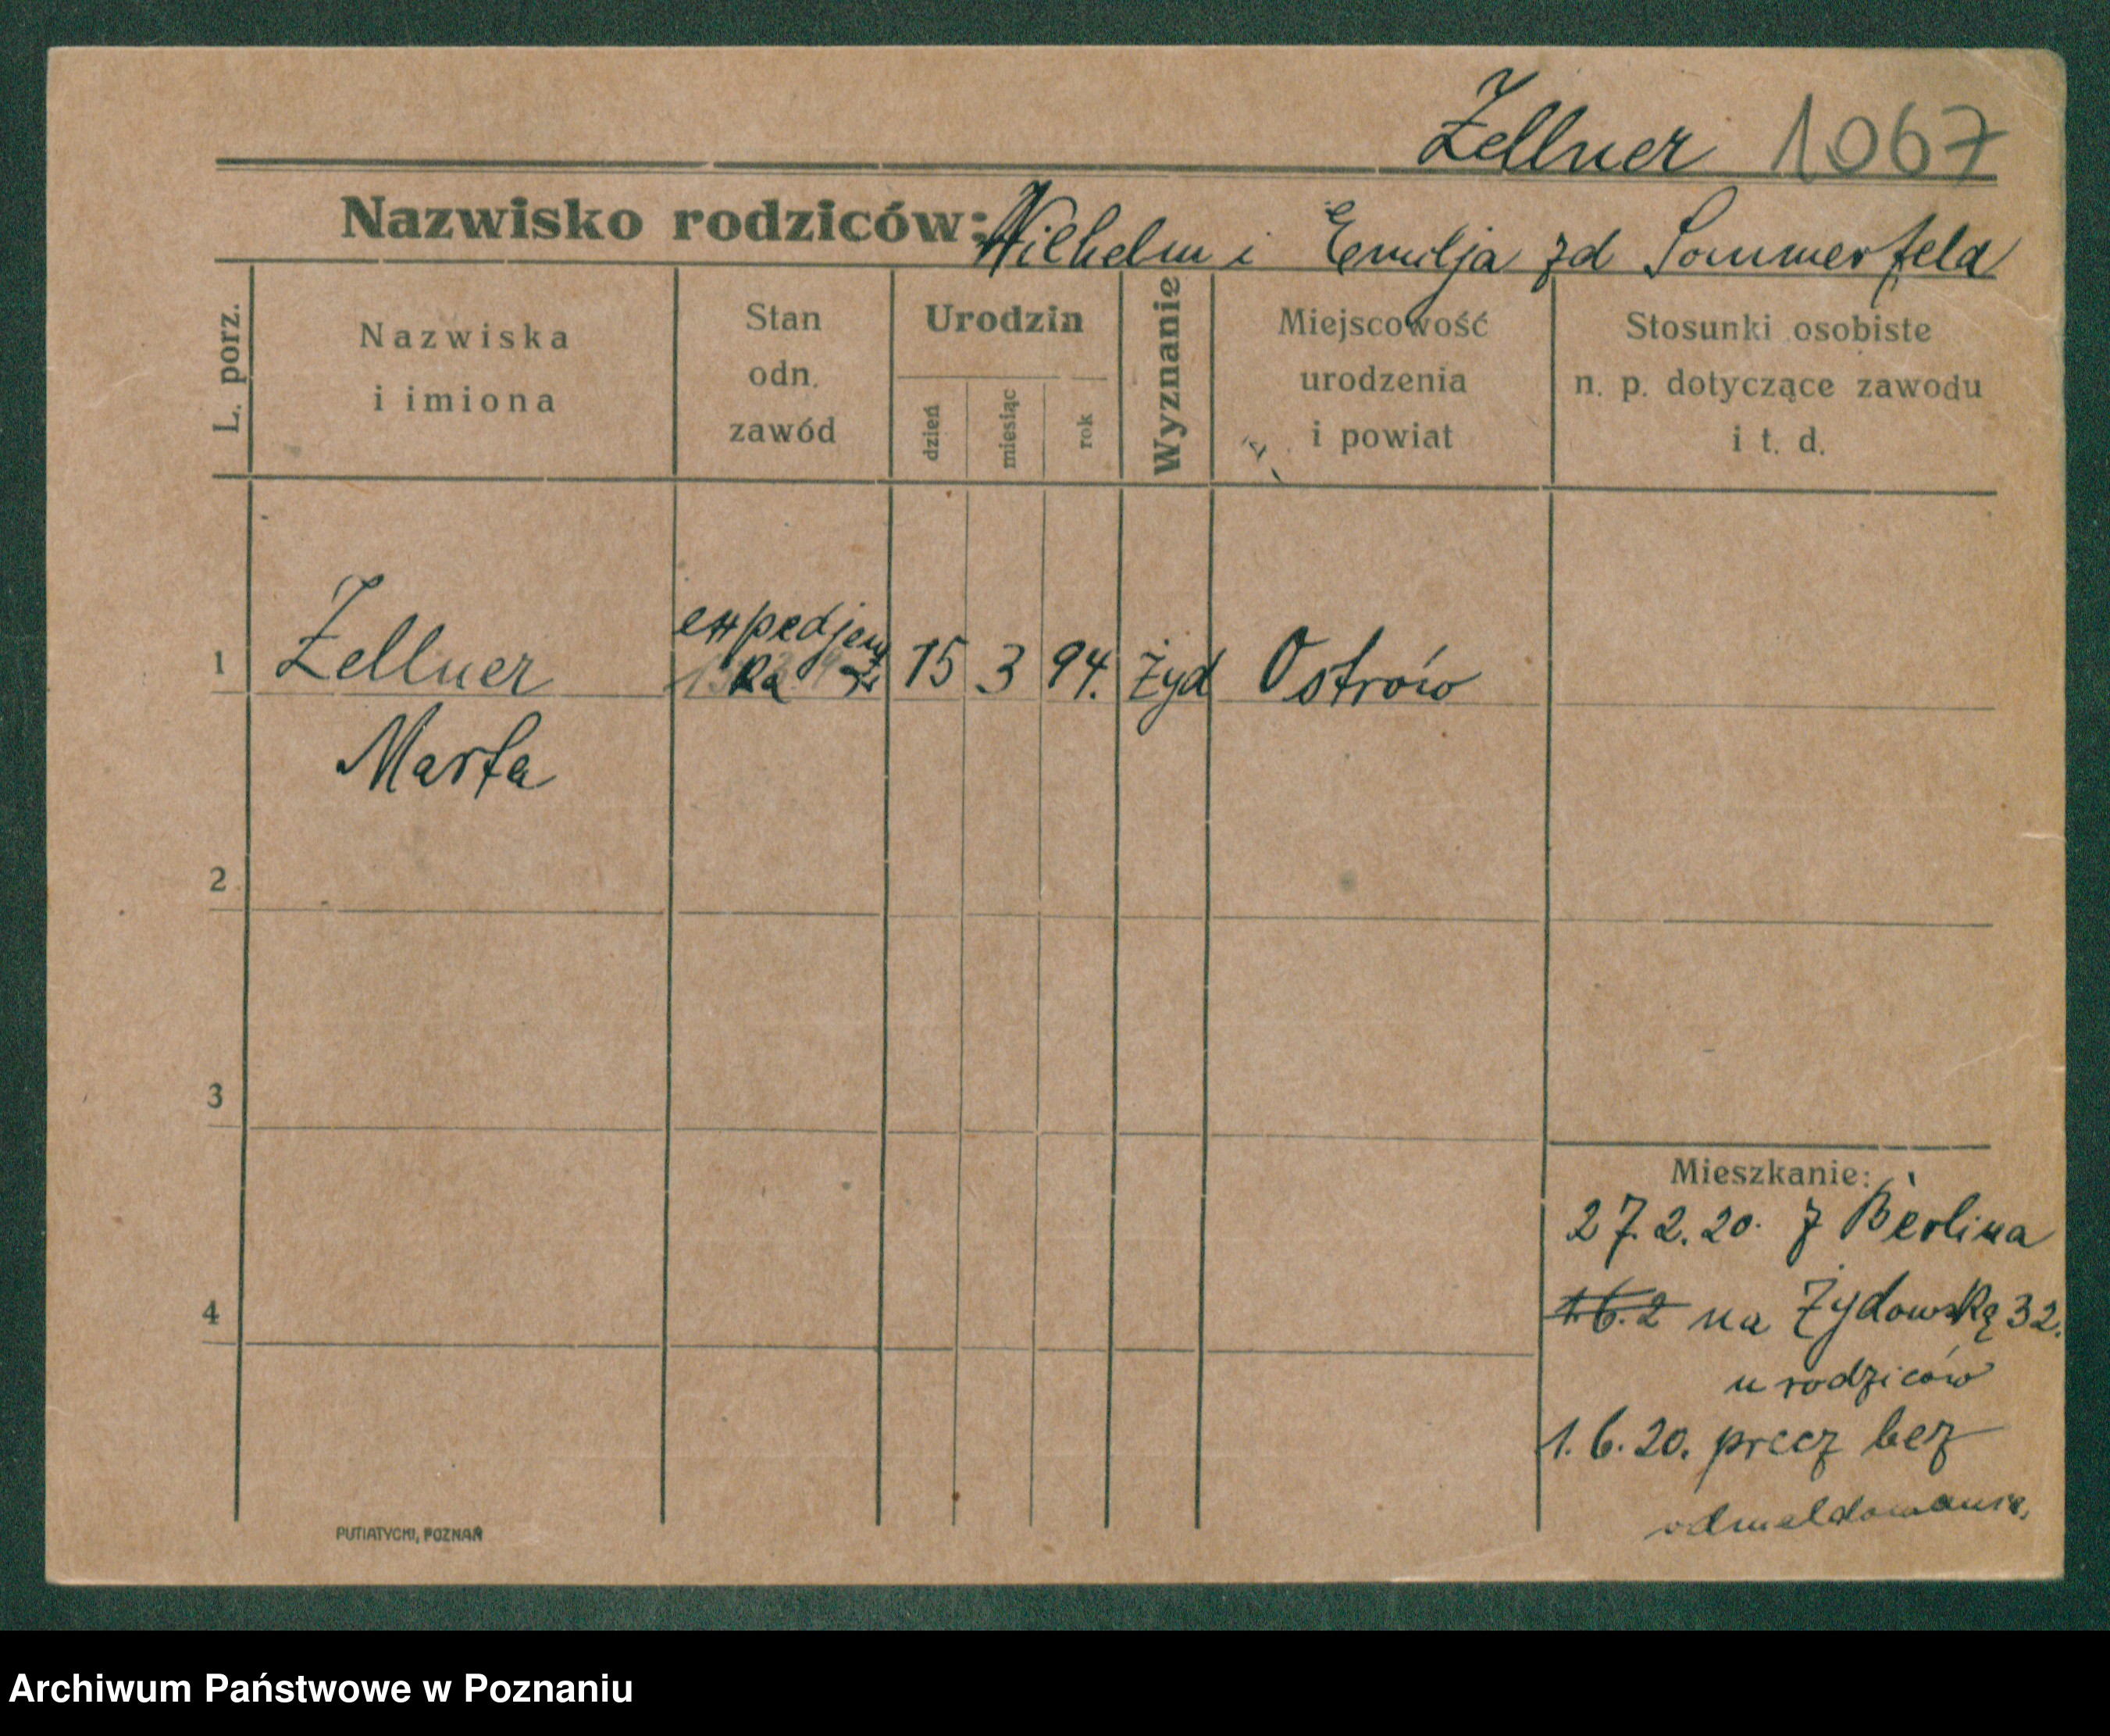 Zellner 1067
Nazwisko rodziców: Wilhelm i Emilja zd Sommerfeld
L. porz.
Nazwiska i imiona
Stan odn. zawód
Urodzin
dzień
miesiąc
rok
Wyznanie
Miejscowość urodzenia i powiat
Stosunki osobiste n. p. dotyczące zawodu i t. d.
1 Zellner expedjent 15 3 94. żyd Ostrów
ka
Marta
2
3
4
Mieszkanie:
27.2.20. z Berlina
1.6.2 na Żydowską 32.
u rodziców
1.6.20. precz bez
odmeldowania.
PUTIATYCKI, POZNAŃ
Archiwum Państwowe w Poznaniu